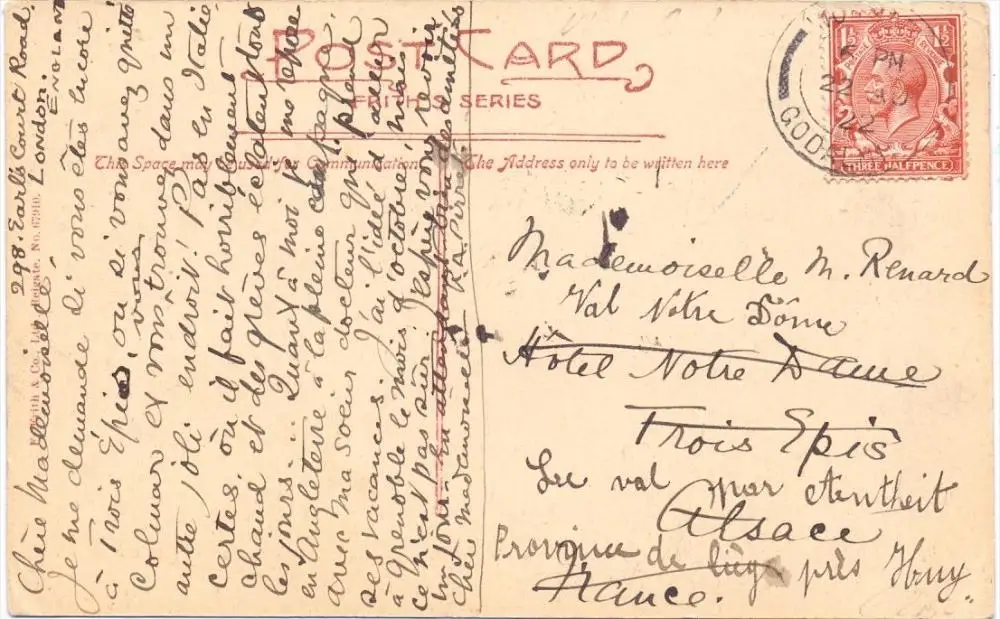 POST CARD
FRITH'S SERIES
This Space may be used for Communication
The Address only to be written here
F. Frith & Co., Ltd., Reigate. No. 67910.
298. Earl's Court Road.
London.
ENGLAND
Chère Mademoiselle
Je me demande si vous êtes encore
à Trois Épis ou si vous avez quitté
Colmar et vous vous trouvez dans un
autre joli endroit! Pas en Italie
certes, où il fait horriblement
chaud et des grèves éclatent tous
les jours... Quant à moi je me repose
en Angleterre à la pleine campagne
avec ma soeur docteur qui prend
ses vacances. J'ai l'idée d'aller
à Grenoble le mois d'octobre, mais
ce n'est pas sûr. J'espère vous revoir
un jour. En attendant
amitiés
chère mademoiselle
PM
22
GODAL
THREE HALFPENCE
1½
1½
POSTAGE
Mademoiselle M. Renard
Val Notre Dôme
Hôtel Notre Dame
Trois Epis
par
Alsace
Province de Liège près Huy.
France.